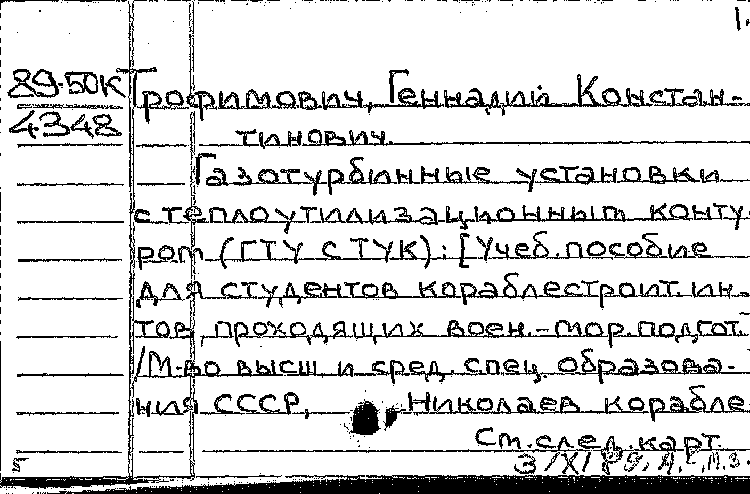 1.
89-50К Трофимович, Геннадий Констан-
4348 тинович.
Газотурбинные установки
с теплоутилизационным конту-
ром (ГТУ с ТУК): [Учеб. пособие
для студентов кораблестроит. ин-
тов, проходящих воен.-мор. подгот.
/М-во высш. и сред. спец. образова-
ния СССР, Николаев. корабле-
См. след. карт.
3/XI